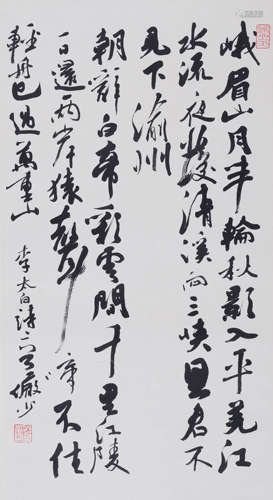 峨眉山月半輪秋影入平羌江
水流夜發清溪向三峽思君不
見下渝州
朝辭白帝彩雲間千里江陵
一日還兩岸猿聲啼不住
輕舟已過萬重山 李太白詩二首儼少